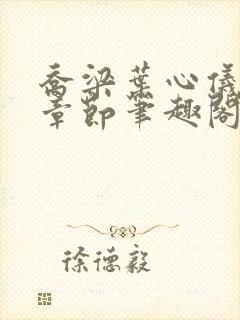 乔梁叶心仪
章节笔趣阁
徐德毅